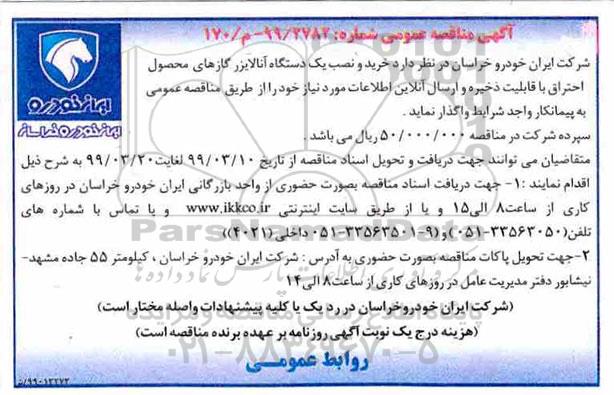 آگهی مناقصه عمومی شماره: ۹۹/۲۷۸۲-م/۱۷۰
شرکت ایران خودرو خراسان در نظر دارد خرید و نصب یک دستگاه آنالایزر گازهای محصول
احتراق با قابلیت ذخیره و ارسال آنلاین اطلاعات مورد نیاز خود را از طریق مناقصه عمومی
به پیمانکار واجد شرایط واگذار نماید .
سپرده شرکت در مناقصه ۵۰/۰۰۰/۰۰۰ ریال می باشد .
متقاضیان می توانند جهت دریافت و تحویل اسناد مناقصه از تاریخ ۹۹/۰۳/۱۰ لغایت ۹۹/۰۳/۲۰ به شرح ذیل
اقدام نمایند :۱- جهت دریافت اسناد مناقصه بصورت حضوری از واحد بازرگانی ایران خودرو خراسان در روزهای
کاری از ساعت۸ الی۱۵ و یا از طریق سایت اینترنتی www.ikkco.ir و یا تماس با شماره های
تلفن(۳۳۵۶۳۰۵۰-۰۵۱) و(۹-۳۳۵۶۳۵۰۱-۰۵۱ داخلی(۴۰۲۱))
۲-جهت تحویل پاکات مناقصه بصورت حضوری به آدرس : شرکت ایران خودرو خراسان ، کیلومتر ۵۵ جاده مشهد-
نیشابور دفتر مدیریت عامل در روزهای کاری از ساعت۸ الی۱۴
(شرکت ایران خودرو خراسان در رد یک یا کلیه پیشنهادات واصله مختار است)
(هزینه درج یک نوبت آگهی روزنامه بر عهده برنده مناقصه است)
روابط عمومی
ایران خودرو
ایران خودرو خراسان
ParsNamadData
۰۲۱-۸۸۳۴۹۶۷۰-۵